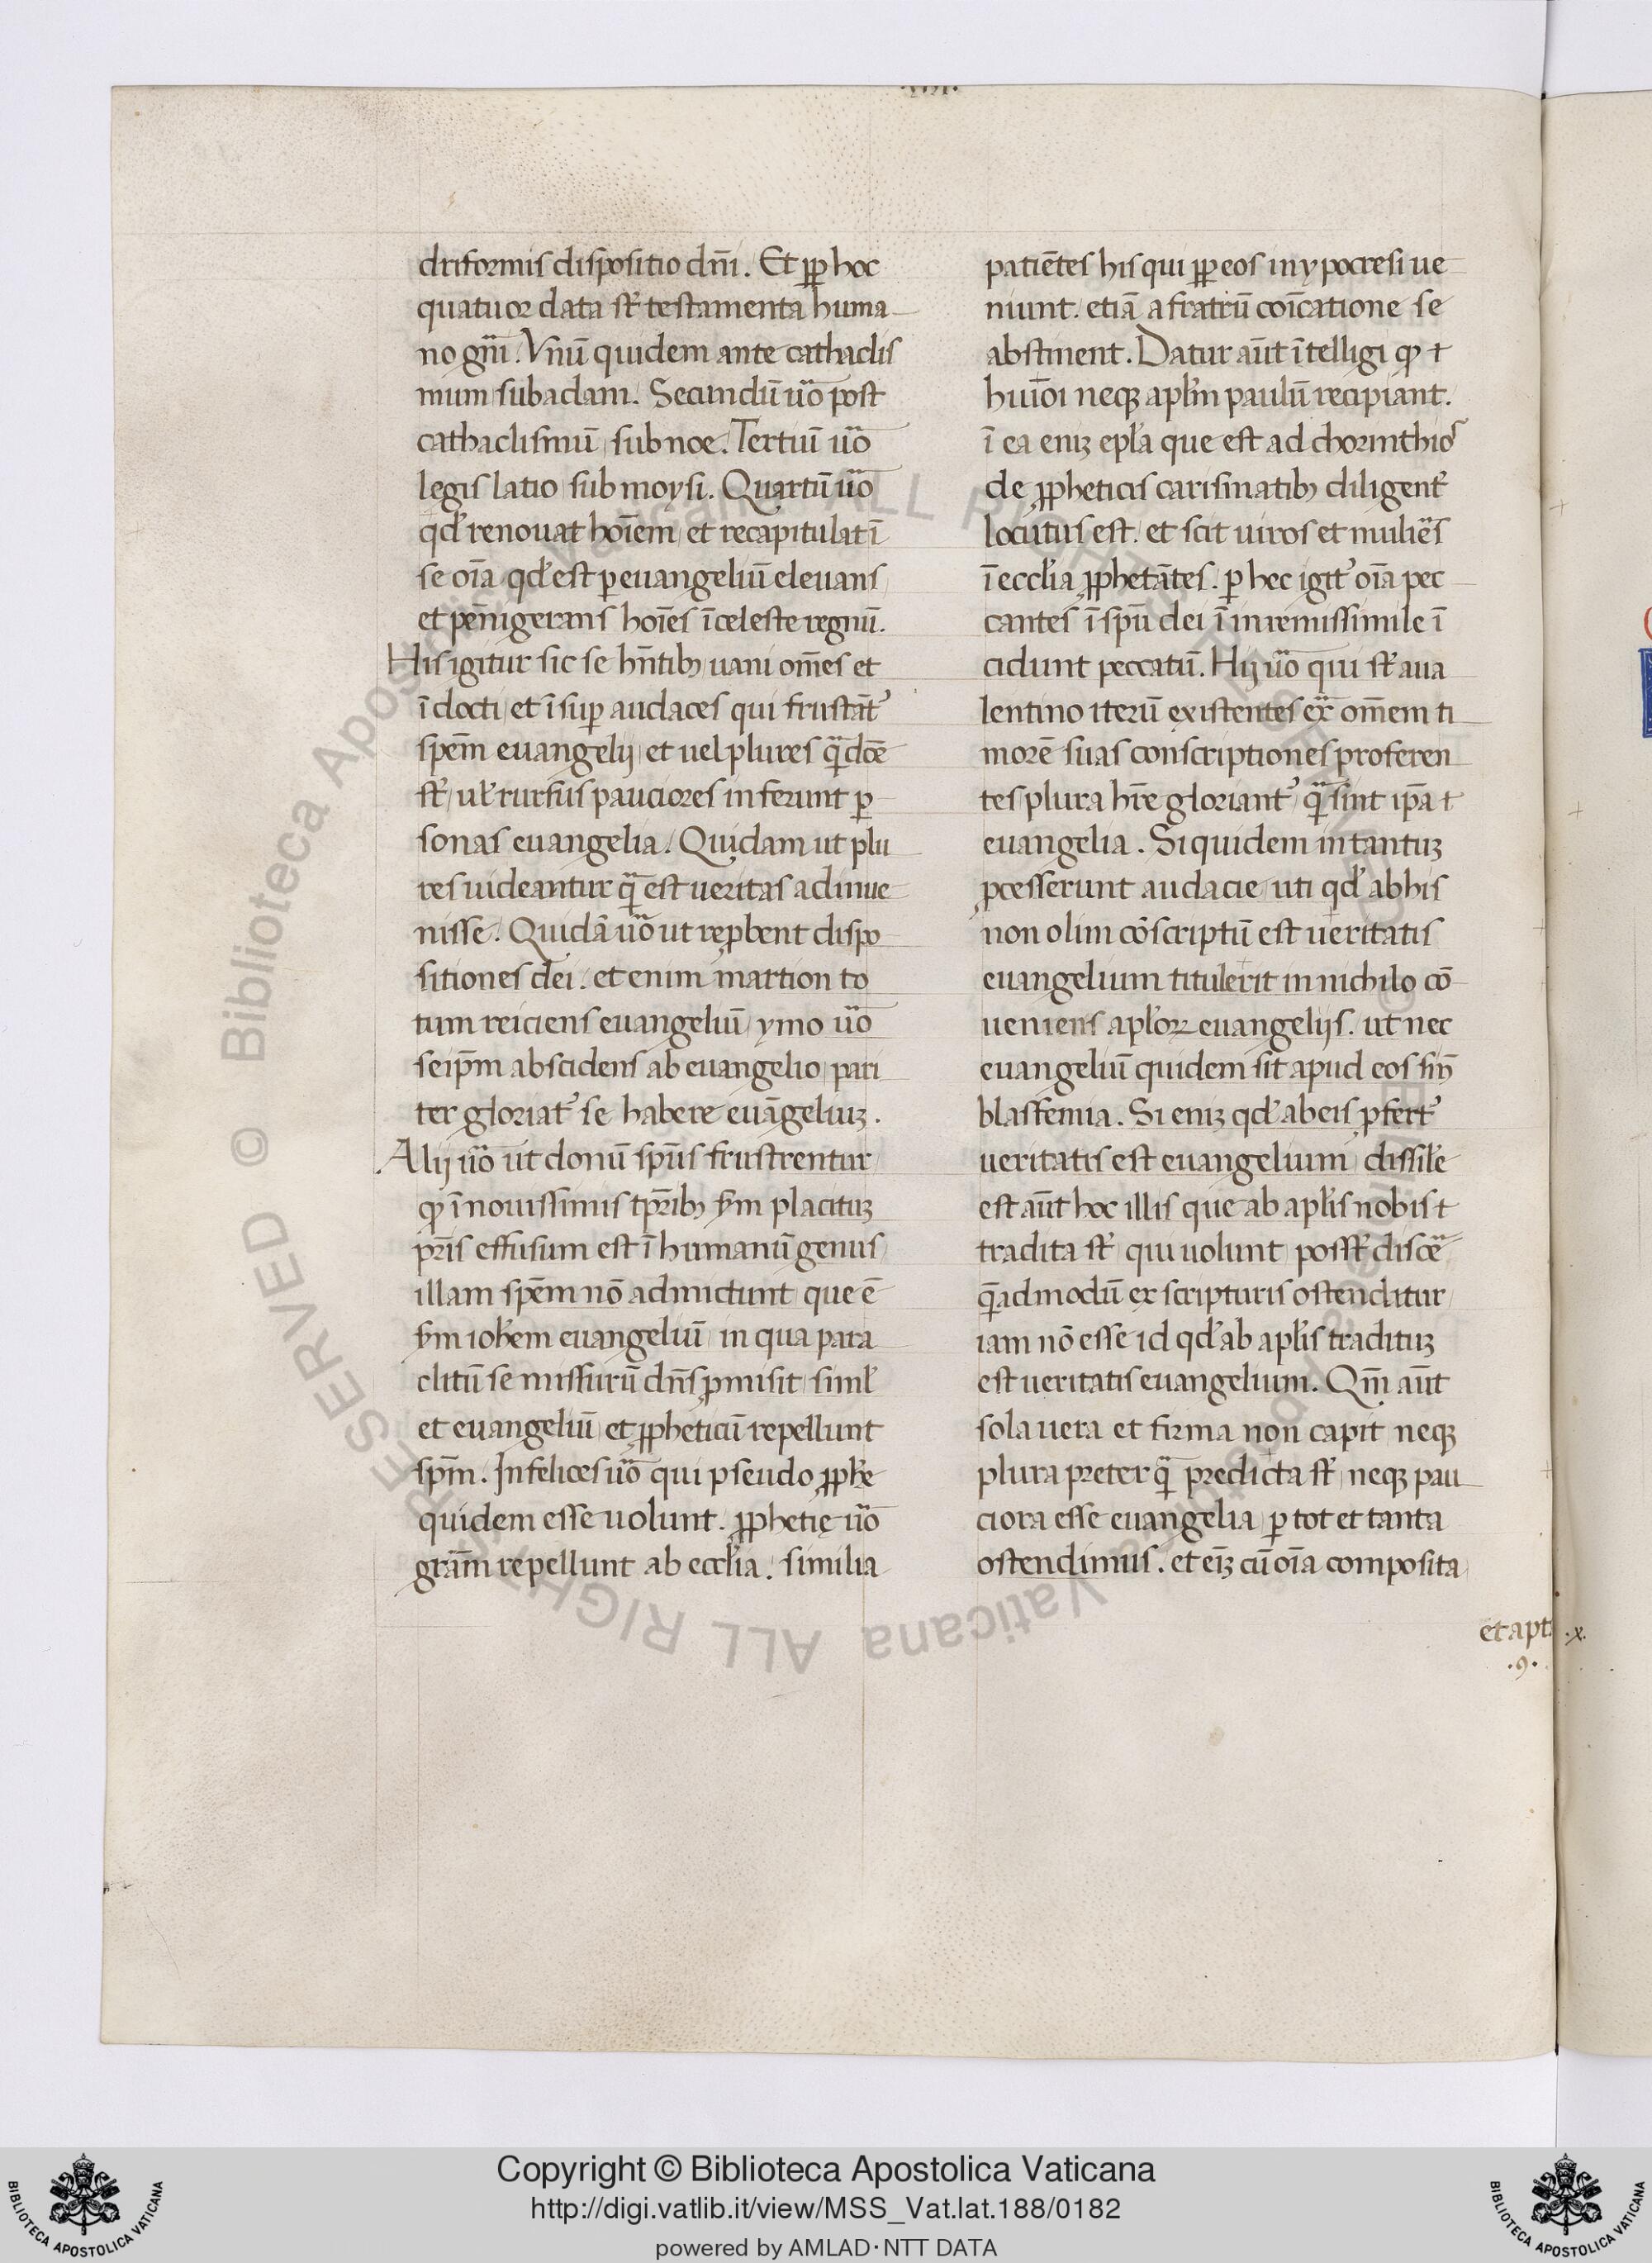 driformis dispositio dn̄i. Et ꝓp̱ hoc
quatuor data st̄ testamenta huma
no gn̄i. Vnū quidem ante cathaclis
mum sub adam. Secundū ūo post
cathaclismū sub noe. Tertuī ūo
legis latio sub moysi. Quartū ūo
qd̓ renouat hoīem et recapitulat ī
se oīa qd̓ est ꝑ euangeliū eleuans
et pēnigerans hoīes ī celeste regnū.
His igitur sic se hn̄tibꝫ uani om̄es et
ī docti et īsuꝑ audaces qui frustāt᷑
spēm euangelij et uel plures q̄ꝫ dcē
st̄ ul̓ rursus pauciores inferunt ꝑ
sonas euangelia. Quidam ut plu
res uideantur q̄ꝫ est ueritas adinue
nisse. Quidā ūo ut reꝓbent dispo
sitiones dei. et enim martion to
tum reiciens euangeliū ymo ūo
seip̄m abscidens ab euangelio pari
ter gloriat᷑ se habere euāngeliuꝫ.
Alij ūo ut donū sp̄us frustrentur
ꝙ ī nouissimis tp̄ribꝫ s̄m placituꝫ
pr̄is effusum est ī humanū genus
illam spēm nō admictunt que ē
s̄m ioh̄em euangeliū in qua para
clitū se missurū dn̄s ꝓmisit siml̓
et euangeliū et ꝓpheticū repellunt
spm̄. Infelices ūo qui pseudo ꝓph̄e
quidem esse uolunt. ꝓphetię ūo
grām repellunt ab eccl̓ia. similia
patiētes his qui ꝓp̱ eos in ypocresi ue
niunt. etiā a fratrū coīcatione se
abstinent. Datur aūt ītelligi ꝙ ⁊
huīoi neqꝫ apl̓m paulū recipiant.
ī ea eniꝫ epl̓a que est ad chorinthios
de ꝓpheticis carismatibꝫ diligent᷑
locutus est. et scit uiros et muliēs
ī eccl̓ia ꝓphetātes. ꝑ hec igit᷑ oīa pec
cantes ī spū dei ī inremissimile ī
cidunt peccatū. Hij ūo qui st̄ a ua
lentino iterū existentes ex̄ om̄em ti
morē suas conscriptiones proferen
tes plura hr̄e gloriant᷑ q̄ꝫ sint ip̄a ⁊
euangelia. Siquidem in tantuꝫ
ꝓcesserunt audacie uti qd̓ ab his
non olim cōscriptū est ueritatis
euangelium titulerit in nichilo cō
ueniens apl̓oꝝ euangelijs. ut nec
euangeliū quidem sit apud eos sin̄
blasfemia. Si eniꝫ qd̓ ab eis ꝓfert᷑
ueritatis est euangelium dissil̓e
est aūt hoc illis que ab apl̓is nobis ⁊
tradita st̄ qui uolunt posst̄ discē
q̄ꝫadmodū ex scripturis ostenditur
iam nō esse id qd̓ ab apl̓is traditūꝫ
est ueritatis euangelium. Qm̄ aūt
sola uera et firma non capit neqꝫ
plura preter q̄ꝫ predicta st̄ neqꝫ pau
ciora esse euangelia ꝑ tot et tanta
ostendimus. et eīꝫ cū oīa composita
et apt
.9.
.x.
© Biblioteca Apostolica Vaticana ALL RIGHTS RESERVED
© Biblioteca Apostolica Vaticana ALL RIGHTS RESERVED
Copyright © Biblioteca Apostolica Vaticana
http://digi.vatlib.it/view/MSS_Vat.lat.188/0182
powered by AMLAD·NTT DATA
BIBLIOTECA APOSTOLICA VATICANA
BIBLIOTECA APOSTOLICA VATICANA